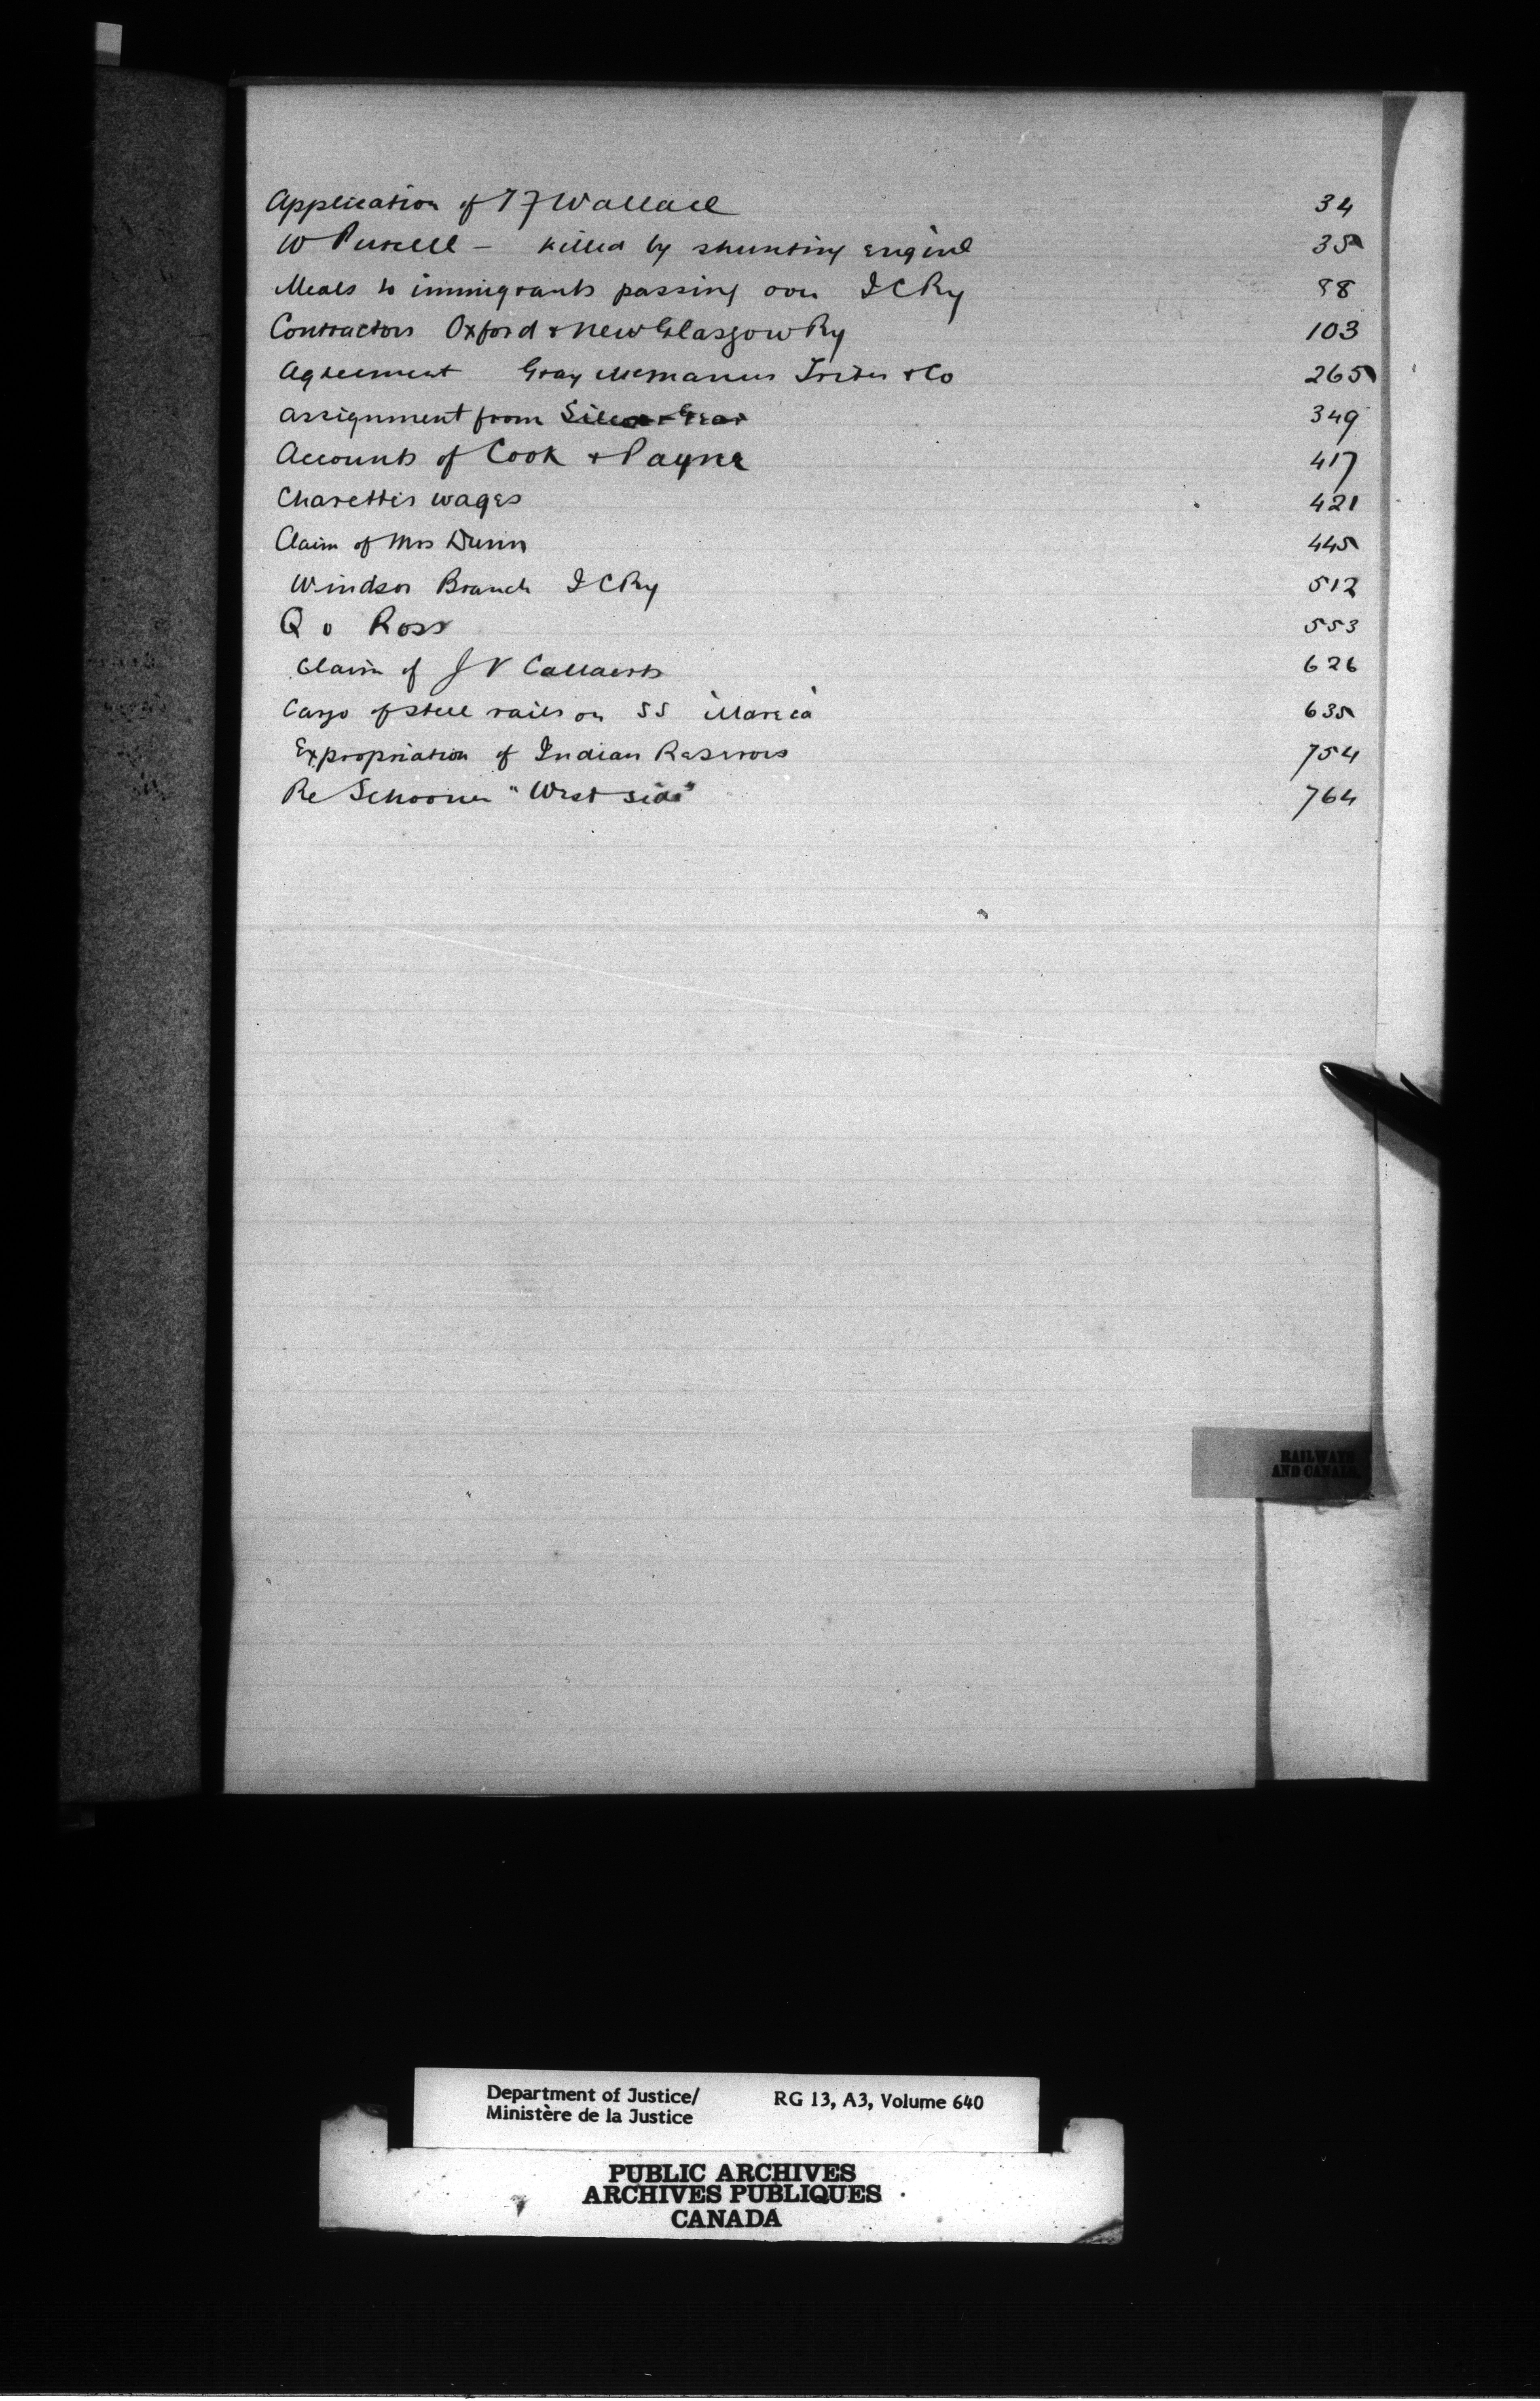 Application of T J Wallace 34
W Pursell - killed by shunting engine 35
Meals to immigrants passing over I C Ry 98
Contractors Oxford & New Glasgow Ry 103
Agreement Gray McManus & Co 265
Assignment from 349
Accounts of Cook & Payne 417
Charettes wages 421
Claim of Mrs Dunn 445
Windsor Branch I C Ry 512
Q v Ross 553
Claim of J V Callaerts 626
Cargo of steel rails on SS 635
Expropriation of Indian Reserves 754
Re Schooner "West side" 764
RAILWAYS
AND CANALS.
Department of Justice/ RG 13, A3, Volume 640
Ministère de la Justice
PUBLIC ARCHIVES
ARCHIVES PUBLIQUES
CANADA